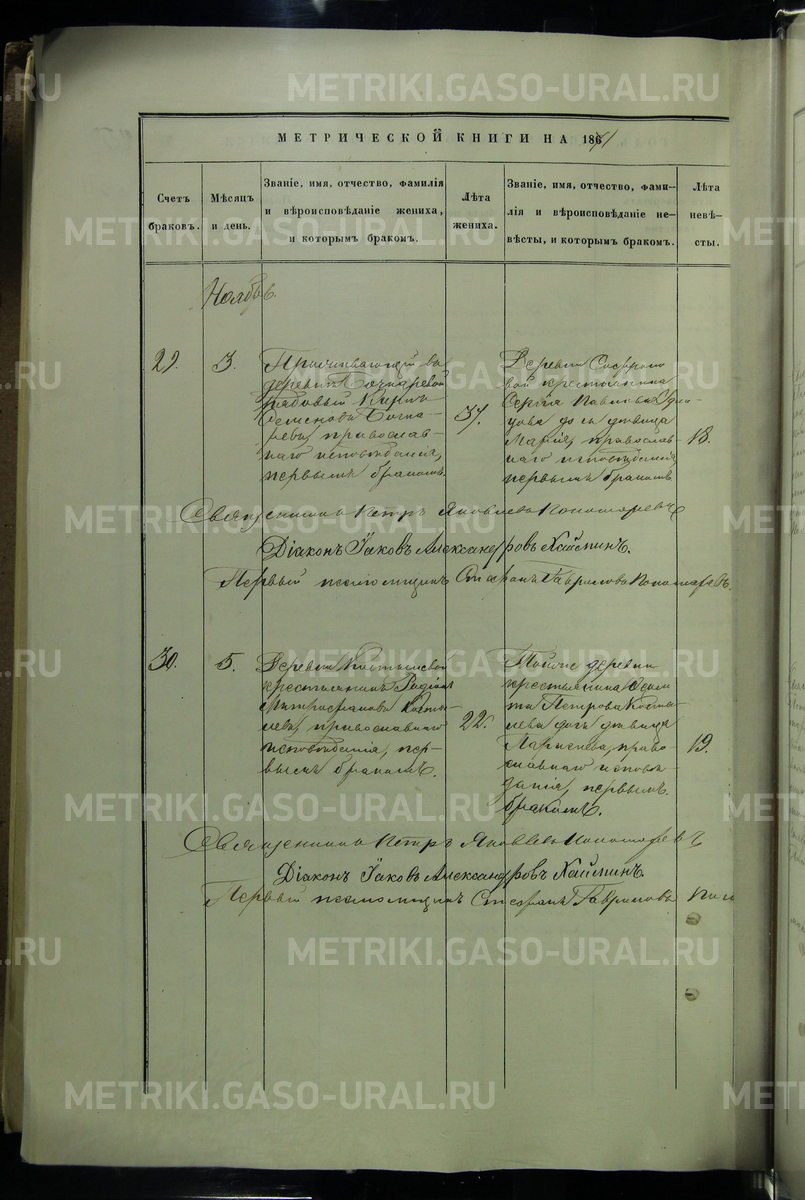 МЕТРИЧЕСКОЙ КНИГИ НА 1861
Счетъ
браковъ.
Мѣсяцъ
и день.
Званіе, имя, отчество, фамилія
и вѣроисповѣданіе жениха,
и которымъ бракомъ.
Лѣта
жениха.
Званіе, имя, отчество, фами-
лія и вѣроисповѣданіе не-
вѣсты, и которымъ бракомъ.
Лѣта
невѣ-
сты.
Ноябрь.
29.
3.
Проживающій въ
деревнѣ Бочкаревой
рядовый Кирикъ
Семеновъ Бочка-
ревъ, православ-
наго исповѣданія,
первымъ бракомъ.
37.
Деревни
вой крестьянина
Сергія Павлова
дочь дѣвица
Марія, православ-
наго исповѣданія,
первымъ бракомъ
18.
Священникъ Петръ Яковлевъ Пономаревъ
Діаконъ Іаковъ Александровъ Хаймпинъ.
Первый псаломщикъ Стефанъ Гавриловъ Пономаревъ.
30.
5.
Деревни Костылевой
крестьянинъ Родіонъ
Митрофановъ Косты-
левъ, православнаго
исповѣданія, пер-
вымъ бракомъ.
22.
Тойже деревни
крестьянина
Петрова Косты-
лева дочь дѣвица
право-
славнаго исповѣ-
данія, первымъ
бракомъ.
19.
Священникъ Петръ Яковлевъ Пономаревъ
Діаконъ Іаковъ Александровъ Хаймпинъ.
Первый псаломщикъ Стефанъ Гавриловъ Поно
METRIKI.GASO-URAL.RU